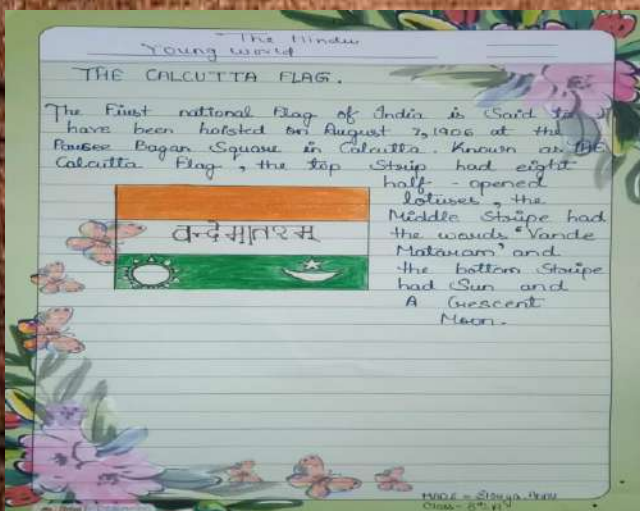 The Hindu
Young World
THE CALCUTTA FLAG.
The First national Flag of India is Said to
have been hoisted on August 7, 1906 at the
Parsee Bagan Square in Calcutta. Known as THE
Calcutta Flag, the top Strip had eight
half-opened
lotuses, the
Middle Stripe had
the words 'Vande
Mataram' and
the bottom Stripe
had Sun and
A Crescent
Moon.
वन्देमातरम्
MADE =
Class - 8th